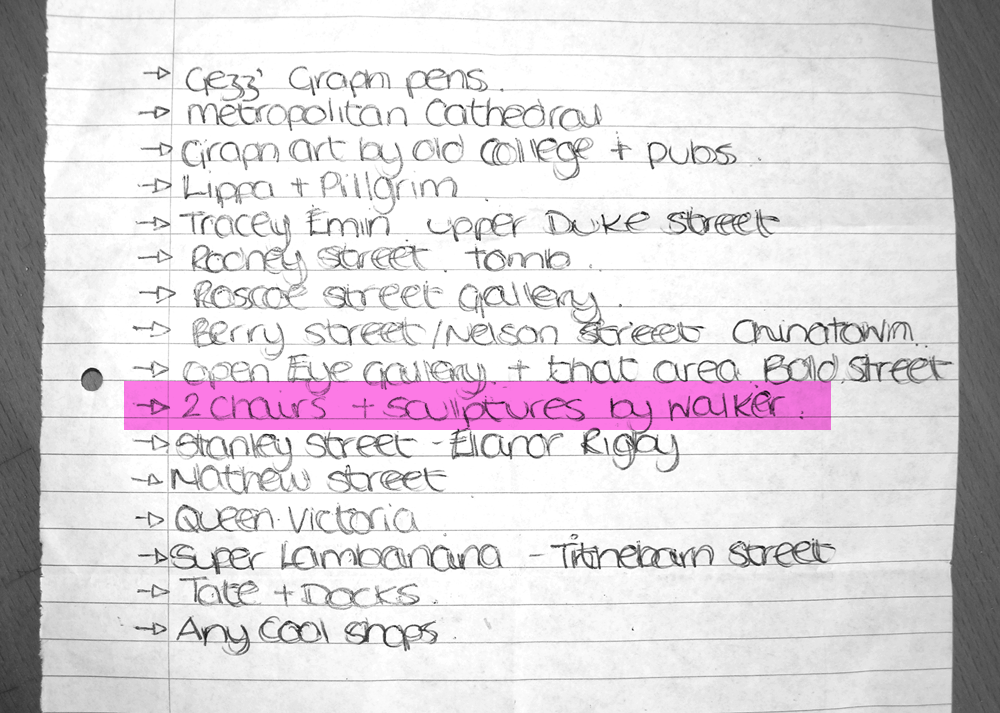 → Gezz' Graph pens.
→ metropolitan Cathedral
→ Graph art by old College + pubs.
→ Lippa + Pillgrim
→ Tracey Emin upper Duke street
→ Rodney street. tomb.
→ Roscoe street gallery.
→ Berry street/Nelson street Chinatown.
→ Open Eye gallery. + that area Bold street
→ 2 chairs + sculptures by walker.
→ Stanley street - Elanor Rigby
→ Mathew street
→ Queen Victoria
→ Super Lambanana - Tithebarn street
→ Tate + Docks.
→ Any cool shops.